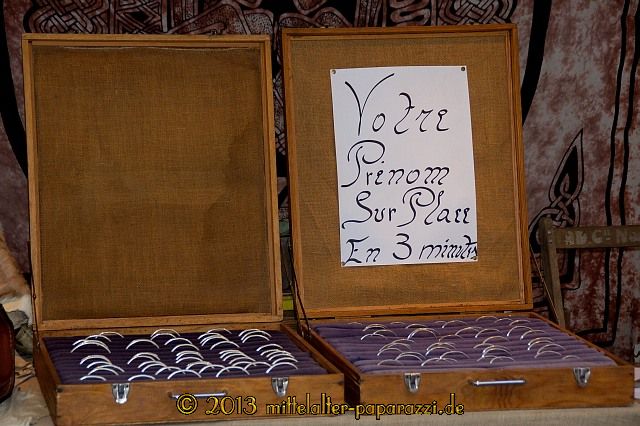 Votre
Prénom
Sur Place
En 3 minutes
© 2013 mittelalter-paparazzi.de